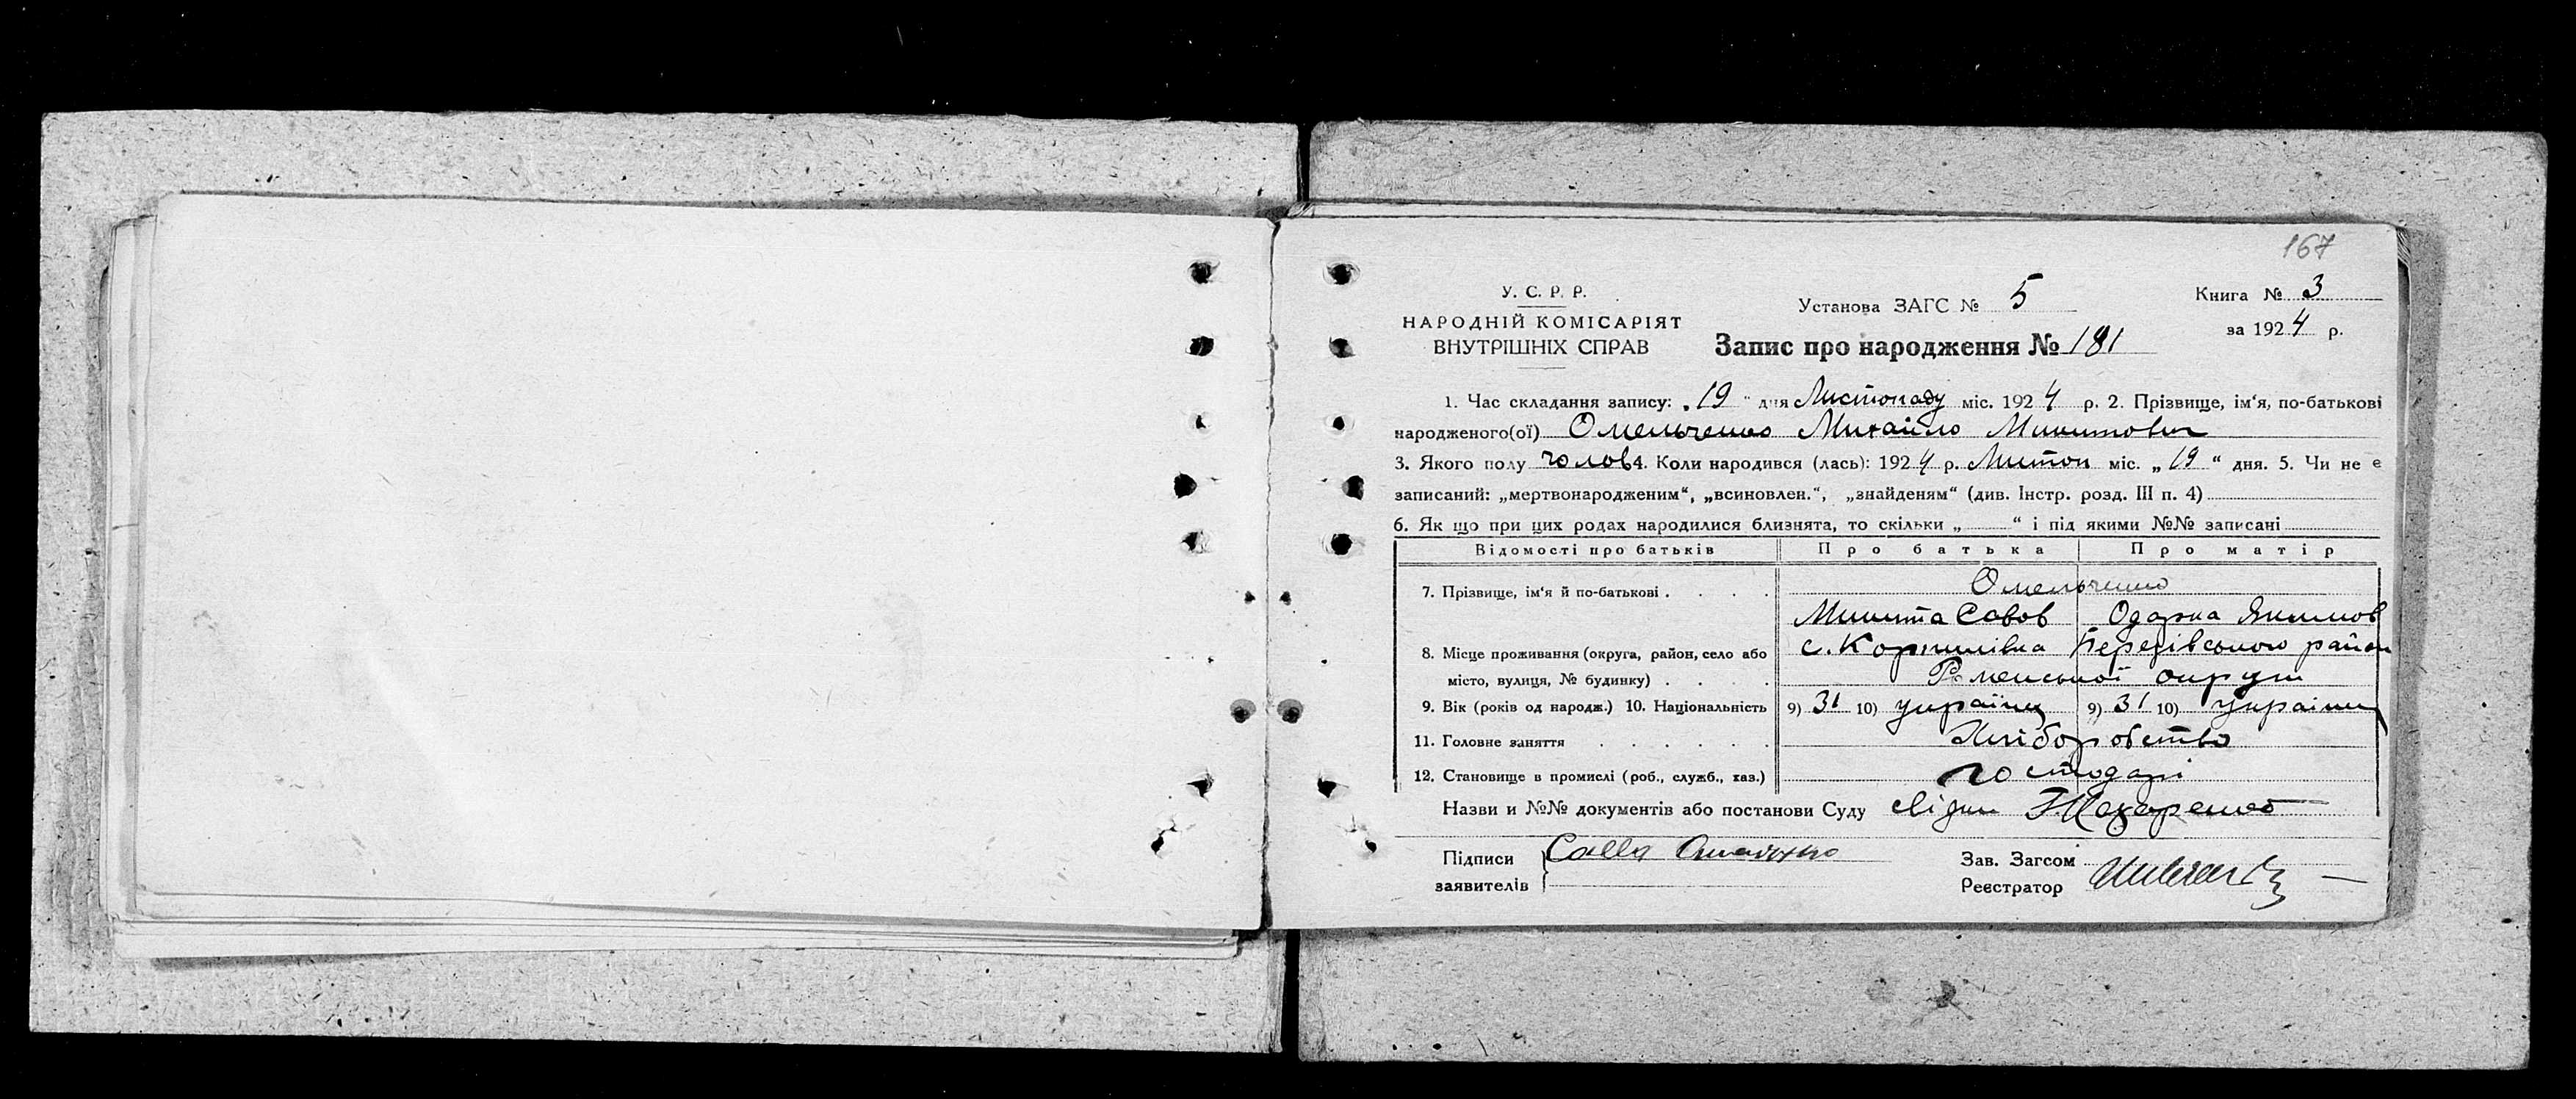 167
У. С. Р. Р.
НАРОДНІЙ КОМІСАРІЯТ
ВНУТРІШНІХ СПРАВ
Установа ЗАГС № 5
Запис про народження № 181
Книга № 3
за 1924 р.
1. Час складання запису: „19“ дня Листопаду міс. 1924 р. 2. Прізвище, ім'я, по-батькові
народженого(ої) Омельченко Михайло Микитович
3. Якого полу чолов 4. Коли народився (лась): 1924 р. Листоп міс. „19“ дня. 5. Чи не є
записаний: „мертвонародженим“, „всиновлен.“, „знайденям“ (див. Інстр. розд. III п. 4)
6. Як що при цих родах народилися близнята, то скільки „ “ і під якими №№ записані
Відомості про батьків Про батька Про матір
7. Прізвище, ім'я й по-батькові . . . . Омельченко
Микита Савов Одарка Якимов
8. Місце проживання (округа, район, село або с. Коржилівка район

місто, вулиця, № будинку) . . . . Роменської округи
9. Вік (років од народж.) 10. Національність 9) 31 10) українец 9) 31 10) україн
11. Головне заняття . . . . . . Хліборобство
12. Становище в промислі (роб., служб., хаз.) господарі
Назви и №№ документів або постанови Суду
Підписи Савва
заявителів
Зав. Загсом
Реєстратор